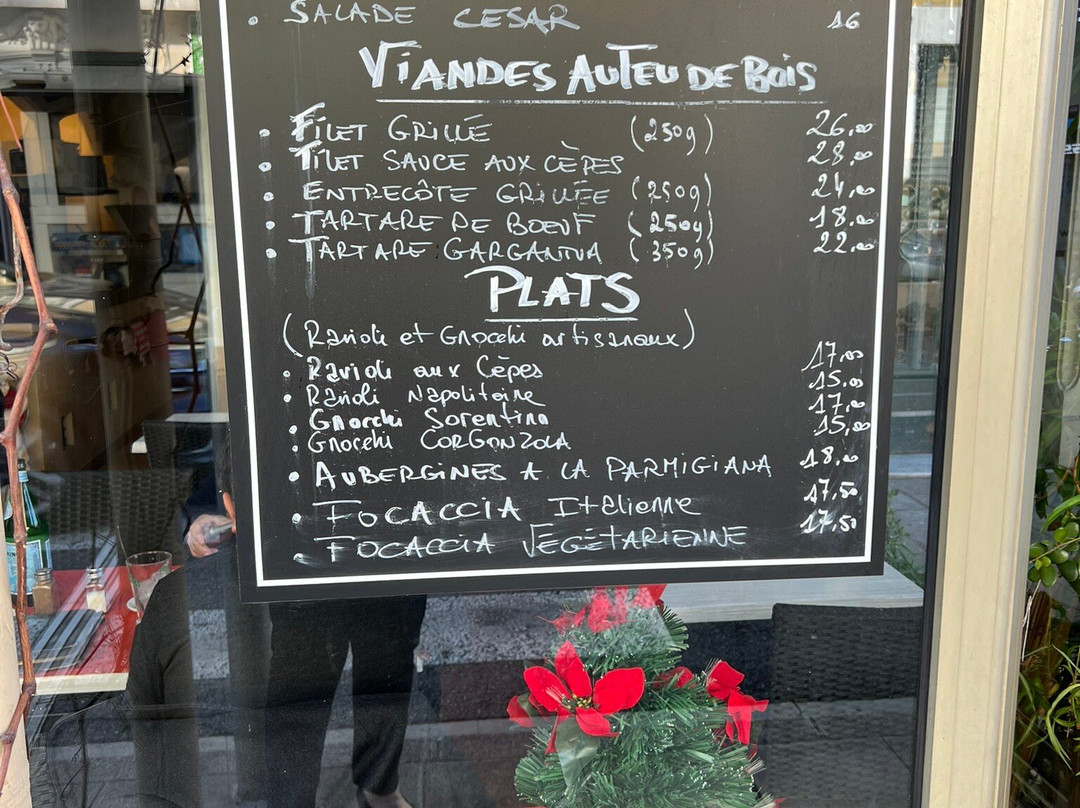 • SALADE CESAR 16
VIANDES AU FEU DE BOIS
• FILET GRILLÉ (250g) 26,00
• FILET SAUCE AUX CÈPES 28,00
• ENTRECÔTE GRILLÉE (250g) 24,00
• TARTARE DE BOEUF (250g) 18,00
• TARTARE GARGANTUA (350g) 22,00
PLATS
(Ravioli et Gnocchi artisanaux)
• Ravioli aux Cèpes 17,00
• Ravioli Napolitaine 15,00
• Gnocchi Sorentina 17,00
• Gnocchi GORGONZOLA 15,00
• AUBERGINES A LA PARMIGIANA 18,00
• FOCACCIA Italienne 17,50
• FOCACCIA VÉGÉTARIENNE 17,50